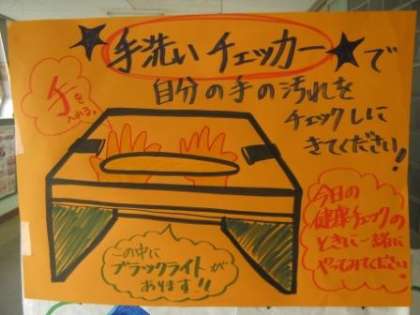 ★手洗いチェッカー★で
自分の手の汚れを
チェックしに
きてください!
手を
入れる。
この中に
ブラックライトが
あります!!
今日の
健康チェックの
ときに一緒に
やってみてください。